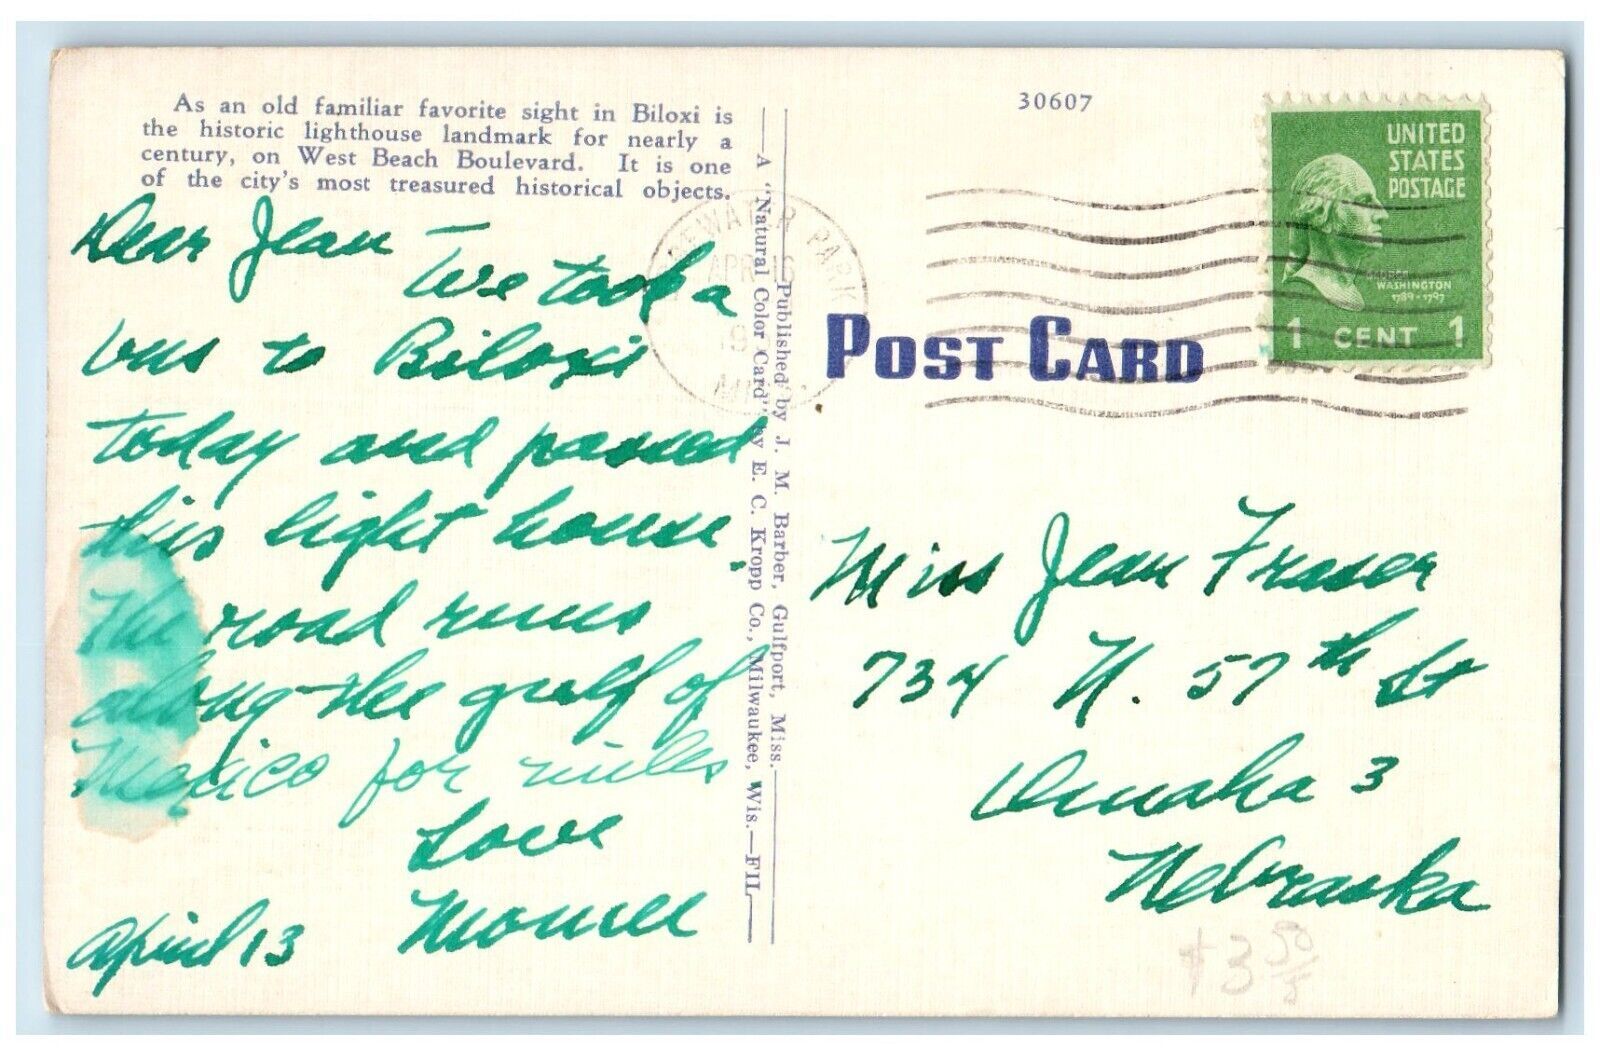 As an old familiar favorite sight in Biloxi is
the historic lighthouse landmark for nearly a
century, on West Beach Boulevard. It is one
of the city's most treasured historical objects.
Dear Jean -
We took a
bus to Biloxi
today and passed
this light house.
The road runs
along the gulf of
Mexico for miles
Love
April 13
—Published by J. M. Barber, Gulfport, Miss.—
—A "Natural Color Card" by E. C. Kropp Co., Milwaukee, Wis.—FIL—
30607
EWATER PARK
APR
POST CARD
UNITED
STATES
POSTAGE
WASHINGTON
1789-1797
1 CENT 1
Miss Jean Fraser
734 N. 57th St
Omaha 3
Nebraska
$3 50